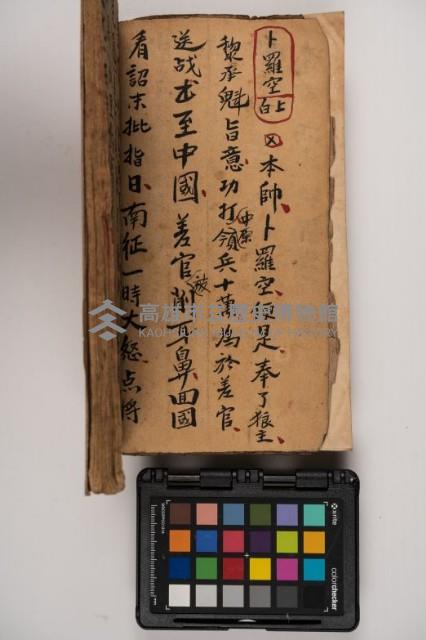 卜羅空
上白
本帥卜羅空 奉了狼主
黎承魁旨意功打中原領兵十萬 於差官
送战书至中國差官被 耳鼻回國
看詔未批指日南征一時大怒点將
高雄市立歷史博物館
KAOHSIUNG MUSEUM OF HISTORY
x-rite
colorchecker